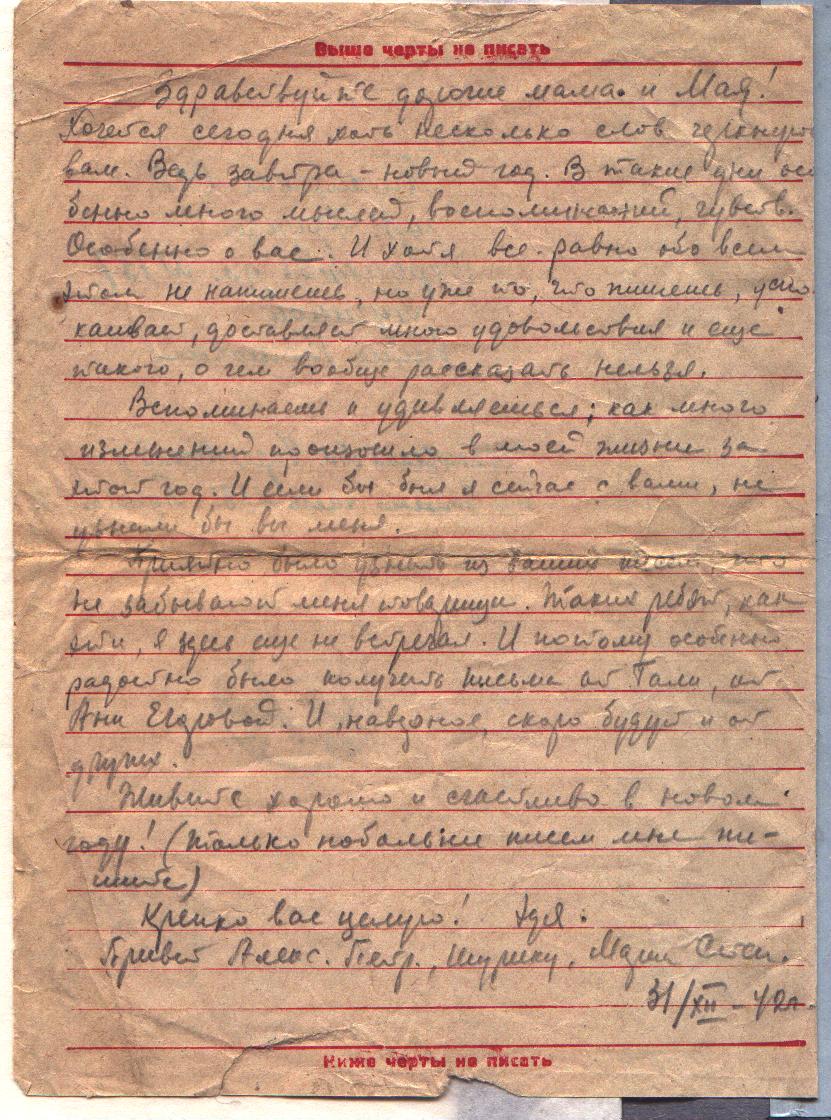 Выше черты не писать
Здравствуйте дорогие мама и Мая!
Хочется сегодня хоть несколько слов черкнуть
вам. Ведь завтра - новый год. В такие дни осо
бенно много мыслей, воспоминаний, чувств.
Особенно о вас. И хотя все равно обо всем
этом не напишешь, но уже то, что пишешь, успо
каивает, доставляет много удовольствия и еще
такого, о чем вообще рассказать нельзя.
Вспоминаешь и удивляешься; как много
изменений произошло в моей жизни за
этот год. И если бы был я сейчас с вами, не
узнали бы вы меня.
Приятно было узнать из ваших писем, что
не забывают меня товарищи. Таких ребят, как
эти, я здесь еще не встречал. И потому особенно
радостно было получить письма от Гали, от
Ани Егдровой. И, наверное, скоро будут и от
других.
Живите хорошо и счастливо в новом
году! (только побольше писем мне пи-
шите)
Крепко вас целую! Эдя.
Привет Алекс. Петр., Шурику, Марии Степ.
31/XII - 42г.
Ниже черты не писать